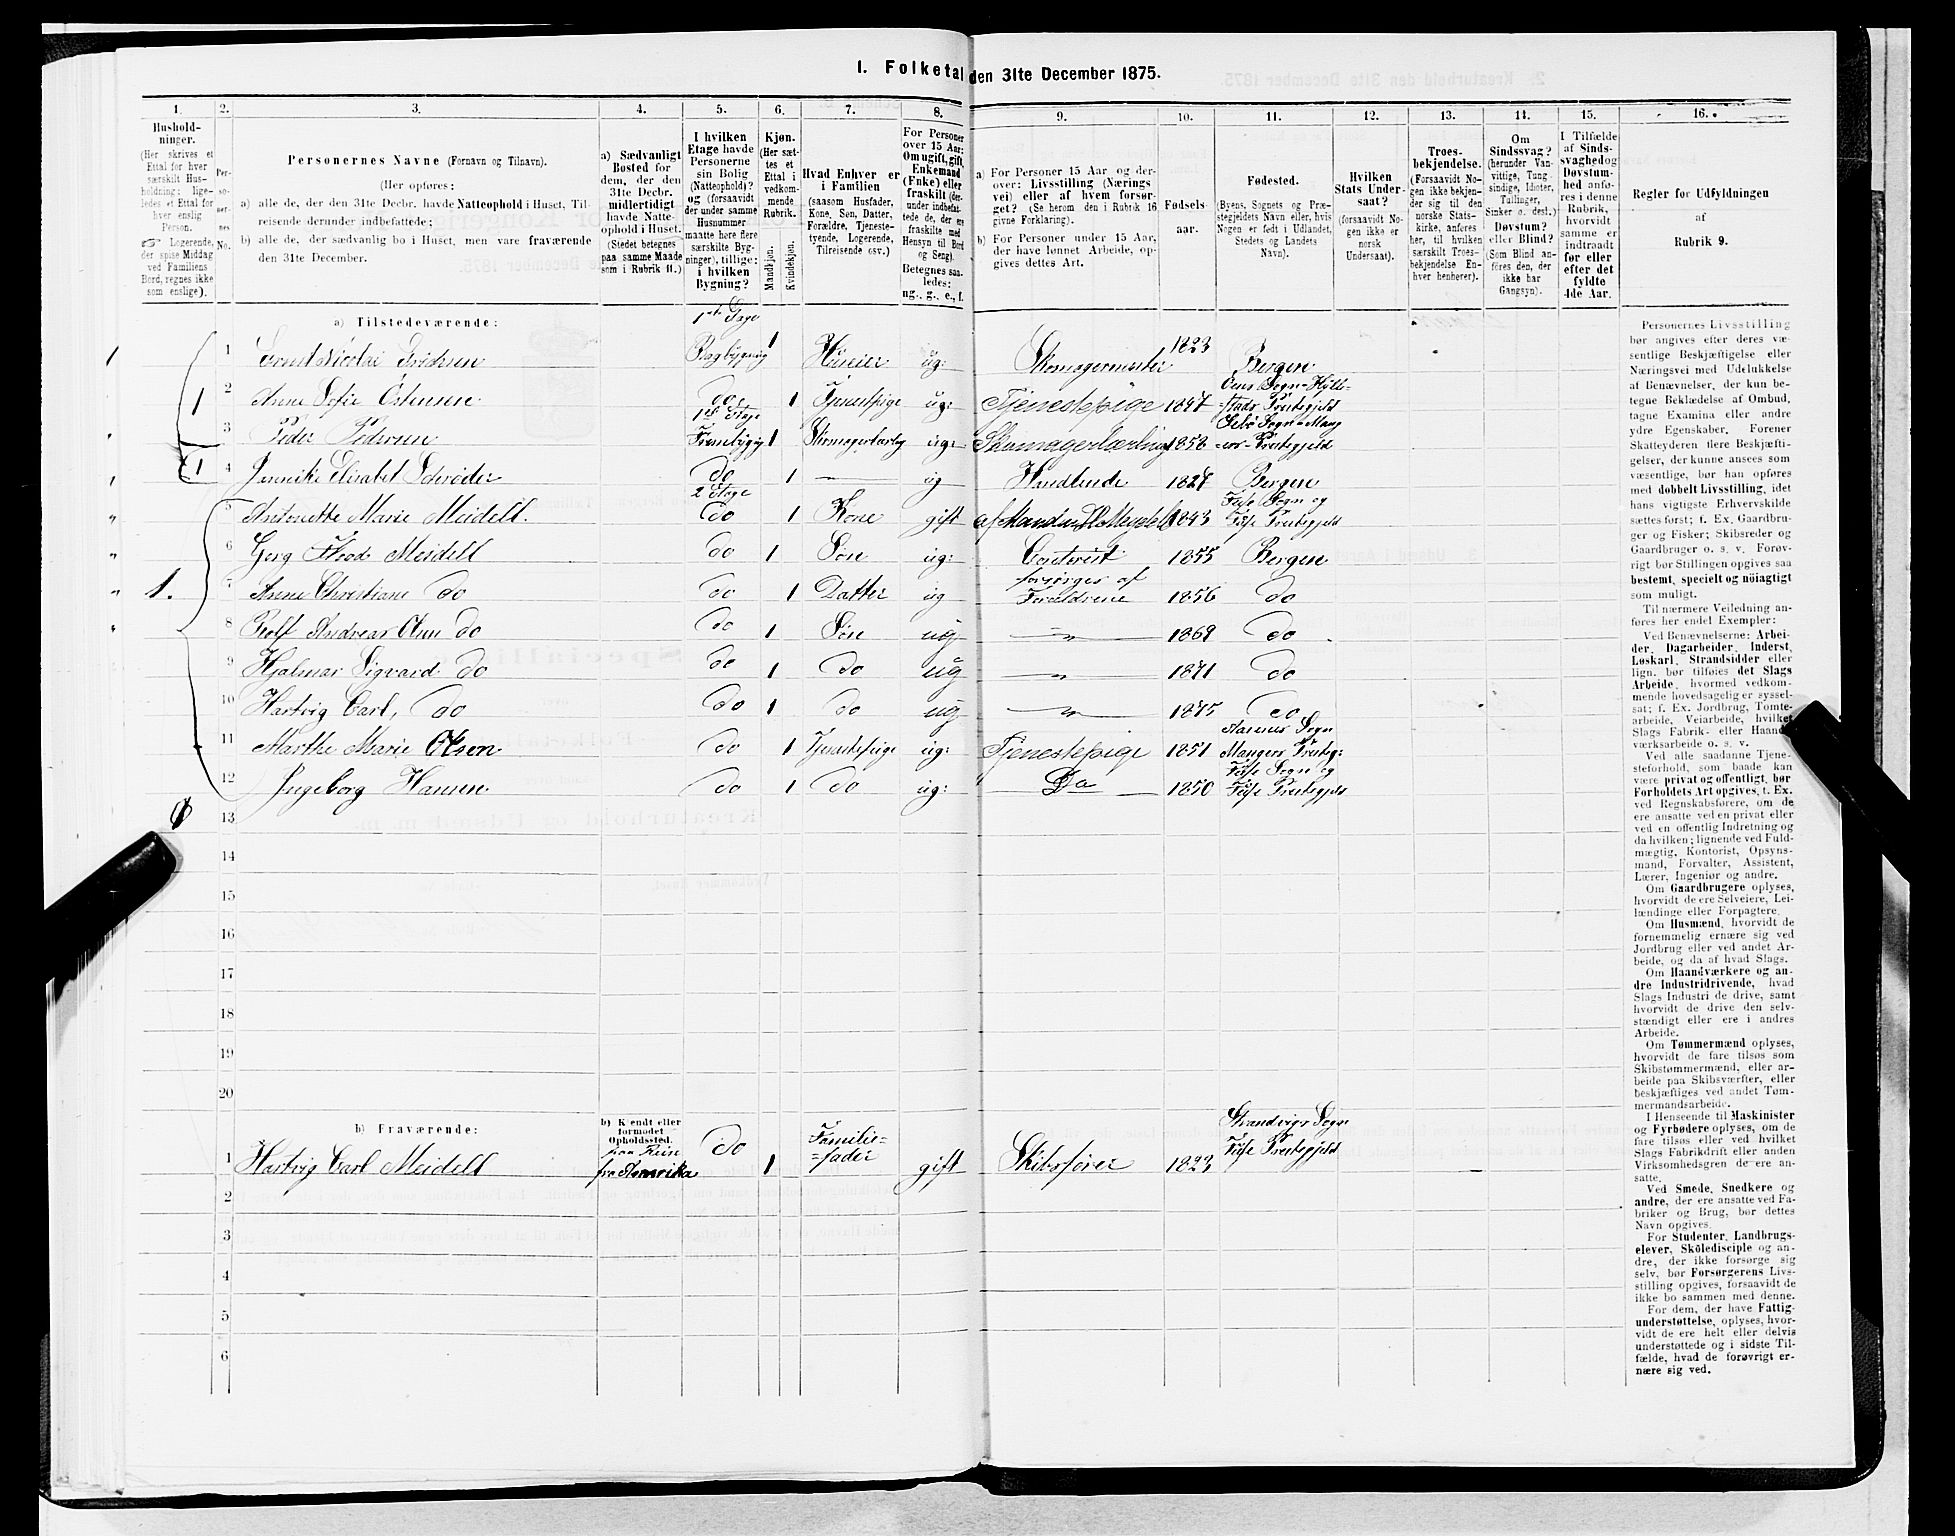 1. Folketal den 31te December 1875.
1. 2. 3. 4. 5. 6. 7. 8. 9. 10. 11. 12. 13. 14. 15. 16.
Husholdninger.
(Her skrives et
Ettal for hver
særskilt Husholdning:
ligeledes et Ettal for
hver enslig
Person.
Logerende,
der spise Middag
ved Familiens
Bord, regnes ikke
som enslige).
Personernes No.
Personernes Navne (Fornavn og Tilnavn).
(Her opføres:
a) alle de, der den 31te Decbr. havde Natteophold i Huset, Tilreisende derunder indbefattede;
b) alle de, der sædvanlig bo i Huset, men vare fraværende
den 31te December.
a) Sædvanligt
Bosted for
dem, der den
31te Decbr.
midlertidigt
havde Natteophold i Huset.
(Stedet betegnes
paa samme Maade
som i Rubrik 11.)
I hvilken
Etage havde
Personerne
sin Bolig
(Natteophold)?
og (forsaavidt
der under samme
Husnummer
maatte høre flere
særskilte Bygninger), tillige:
i hvilken
Bygning?
Kjøn.
(Her sættes et
Ettal i
vedkommende
Rubrik.
Mandkjøn.
Kvindekjøn.
Hvad Enhver er
i Familien
(saasom Husfader,
Kone, Søn, Datter,
Forældre, Tjenestetyende, Logerende,
Tilreisende osv.)
For Personer
over 15 Aar:
Om ugift, gift,
Enkemand
(Enke) eller
fraskilt (derunder indbefattede de, der ere
fraskilte med
Hensyn til Bord
og Seng).
Betegnes saaledes:
ug., g., e., f.
a) For Personer 15 Aar og derover: Livsstilling (Næringsvei) eller af hvem forsørget? (Se herom den i Rubrik 16
givne Forklaring).
b) For Personer under 15 Aar,
der have lønnet Arbeide, opgives dettes Art.
Fødselsaar.
Fødested.
(Byens, Sognets og Præstegjeldets Navn eller, hvis
Nogen er født i Udlandet,
Stedets og Landets
Navn).
Hvilken
Stats Undersaat?
(forsaavidt Nogen ikke er
norsk
Undersaat).
Troesbekjendelse.
(Forsaavidt Nogen ikke bekjender sig til den
norske Statskirke, anføres
her, til hvilken
særskilt Troesbekjendelse Enhver henhører).
Om
Sindssvag?
(herunder Vanvittige, Tungsindige, Idioter,
Tullinger,
Sinker o. desl.)
Døvstum?
eller Blind?
(Som Blind anføres den, der
ikke har
Gangsyn).
I Tilfælde
af Sindssvaghed og
Døvstumhed anføres i denne
Rubrik,
hvorvidt
samme er
indtraadt
før eller
efter det
fyldte
4de Aar.
Regler for Udfyldningen
af
Rubrik 9.
a) Tilstedeværende:
1 Nicolai 1ste Etage Bagbygning 1 Huseier ug: Skomagermester 1823 Bergen
1 2 Anne Sofie Do 1 Tjenestepige ug: Tjenestepige 1847
3 Peder Pedersen 1 ug: Skomagerlærling
1 4 Elisabet Schrøder Do 1 — ug Handlende Bergen
5 Antonette Marie Meidell. 2 Etage Do 1 Kone gift 1843 Fuse Sogn og Fuse Præstegjeld
6 Meidell Do 1 Søn ug: 1855 Bergen
1. 7 Anne Christiane Do Do 1 Datter ug forsørges af Forældrene 1856 Do
8 Rolf Andreas Do Do 1 Søn ug — " — 1869 Do
9 Hjalmar Sigvard Do Do 1 Do ug — " — 1871 Do
10 Hartvig Carl, Do Do 1 Do ug — " — 1875 Do
11 Marthe Marie Olsen Do 1 Tjenestepige ug: Tjenestepige 1851 Sogn Mangers Præsteg:
12 Ingeborg Hansen Do 1 Do ug: Do 1850 Fuse Sogn og Fuse Præstegjeld
13
14
15
16
17
18
19
20
b) Fraværende:
b) Kjendt eller
formodet
Opholdssted.
1 Hartvig Carl Meidell paa Reise fra Amerika Do 1 Familiefader gift Skibsfører 1823 Strandvigs Sogn Fuse Præstegjeld
2
3
4
5
6
Personernes Livsstilling
bør angives efter deres væsentlige Beskjæftigelse eller
Næringsvei med Udelukkelse
af Benævnelser, der kun betegne Beklædelse af Ombud,
tagne Examina eller andre
ydre Egenskaber. Forener
Skatteyderen flere Beskjæftigelser, der kunne ansees som
væsentlige, bør han opføres
med dobbelt Livsstilling, idet
hans vigtigste Erhvervskilde
sættes først; f. Ex. Gaardbruger og Fisker; Skibsreder og
Gaardbruger o. s. v. Forøvrigt bør Stillingen opgives saa
bestemt, specielt og nøiagtigt
som muligt.
Til nærmere Veiledning anføres her endel Exempler:
Ved Benævnelserne: Arbeider, Dagarbeider, Inderst,
Løskarl, Strandsidder eller
lign. bør tilføies det Slags
Arbeide, hvormed vedkommende hovedsagelig er sysselsat; f. Ex. Jordbrug, Tomtearbeide, Veiarbeide, hvilket
Slags Fabrik- eller Haandværksarbeide o. s. v.
Ved alle saadanne Tjenesteforhold, som baade kan
være privat og offentligt, bør
Forholdets Art opgives, t. Ex.
ved Regnskabsførere, om de
ere ansatte ved en privat eller
ved en offentlig Indretning og
da hvilken; lignende ved Fuldmægtig, Kontorist, Opsynsmand, Forvalter, Assistent,
Lærer, Ingeniør og andre.
Om Gaardbrugere oplyses,
hvorvidt de ere Selveiere, Leilændinge eller Forpagtere.
Om Husmænd, hvorvidt de
fornemmelig ernære sig ved
Jordbrug eller ved andet Arbeide, og da af hvad Slags.
Om Haandværkere og andre Industridrivende, hvad
Slags Industri de drive, samt
hvorvidt de drive den selvstændigt eller ere i andres
Arbeide.
Om Tømmermænd oplyses,
hvorvidt de fare tilsøs som
Skibstømmermænd, eller arbeide paa Skibsværfter, eller
beskjæftiges ved andet Tømmermandsarbeide.
I Henseende til Maskinister
og Fyrbødere oplyses, om de
fare tilsøs eller ved hvilket
Slags Fabrikdrift eller anden
Virksomhedsgren de ere ansatte.
Ved Smede, Snedkere og
andre, der ere ansatte ved Fabriker og Brug, bør dettes
Navn opgives.
For Studenter, Landbrugselever, Skoledisciple og andre, der ikke forsørge sig
selv, bør Forsørgerens Livsstilling opgives, forsaavidt de
ikke bo sammen med denne.
For dem, der have Fattigunderstøttelse, oplyses, hvorvidt de ere helt eller delvis
understøttede og i sidste Tilfælde, hvad de forøvrigt ernære sig ved.